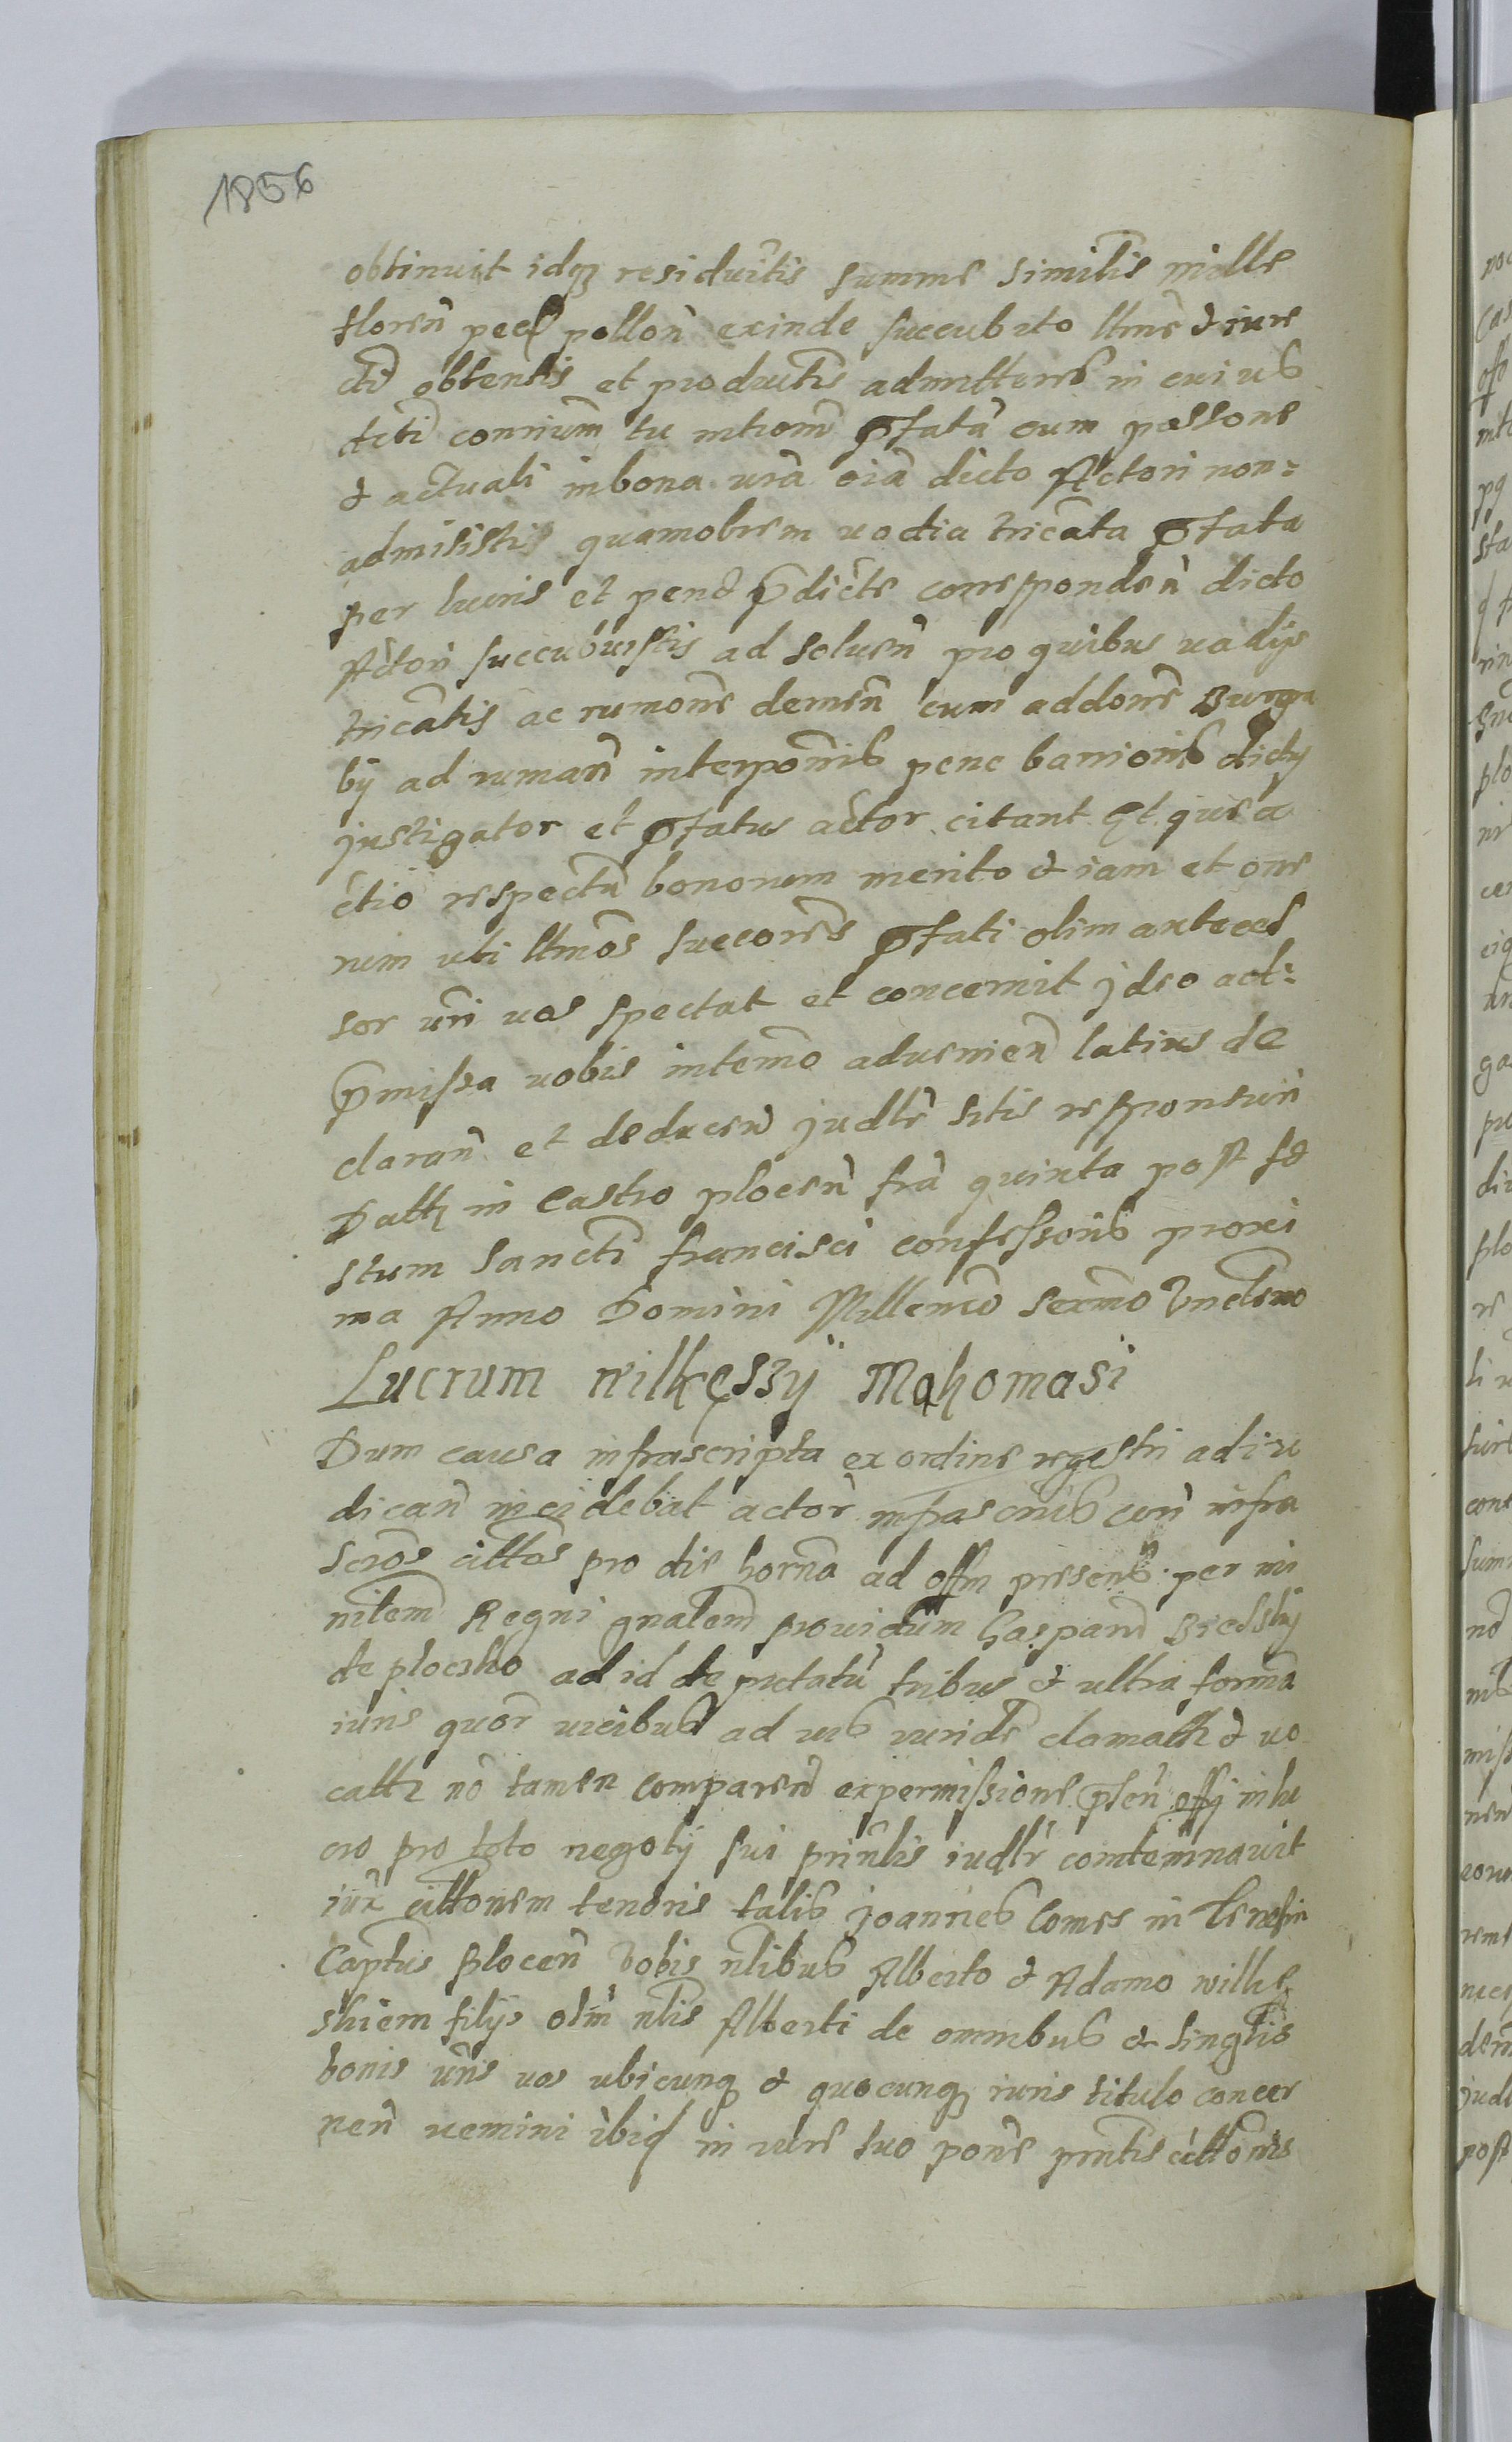 1856
obtinuit idq residuitis summe similis mille
floren pecq pollon exinde succubito ltme & iure
cti obtentis et productis admittere in cuius
dicti contrium tu introm pfata eum possone
& actuali in bona vra oia dicto Actori non=
admisistis quamobrem vadia tricata pfata
per lucris et pend pdicte correspondeñ dicto
Actori succubuistis ad solueñ pro quibus vadys
tricatis ac rumone demeñ cum addone Burgra
bij ad rumañ interponis pene bannionis dicty
justigator et pfatus actor citant Et que a
ctio respectu bonorum merito & iam et one
rum uti ltmos succores pfati olim antecess
sor uri vos spectat et concernit jdeo act=
pmissa vobis in termo aduenieñ latius de
clarañ et deduceñ judlr sitis responsuri
Datt in Castro ploceñ fra quinta post fe
stum sancti francisci confessoris proxi
ma Anno Domini Millemo sexmo Undetimo
Lucrum wilkęssy Mąkomasi
Dum causa infrascripta ex ordine regestri adiu
dicañ incidebat actor infrascris cuñ infra
scros cittos pro die horna ad offm presens per mi
nitem Regni gnalem prouidum Gasparu Bressky
de ploczko ad id deputatu tribus & ultra forma
iuris quor vicibus ad ius viride clamatt & vo
catt no tamen compareñ ex permissione pteñ offy in lu
cro pro toto negoty sui prinlis iudlr comtemnauit
iux cittonem tenoris talis joannes Comes in Tenczin
Captus Ploceñ Vobis nlibus Alberto & Adamo wilkę
skiem filys olim nlis Alberti de omnibus & singlis
bonis uris vos ubicunq & quocunq iuris titulo concer
neñ nemini ibiq in iure suo pone prntis cittonis